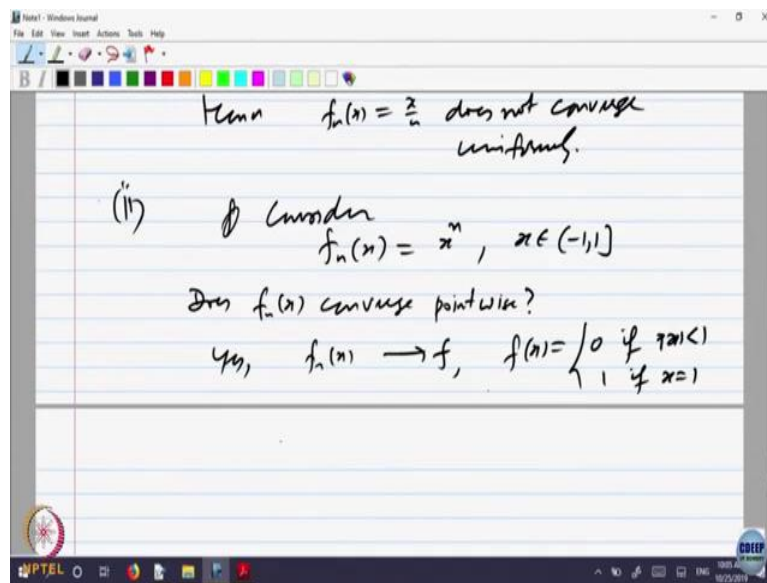 Note1 - Windows Journal
File Edit View Insert Actions Tools Help
B I
Hence f_n(x) = x/n does not converge
uniformly.
(ii) Consider
f_n(x) = x^n , x ∈ (-1,1]
Does f_n(x) converge pointwise?
Yes, f_n(x) → f, f(x) = { 0 if |x|<1
1 if x=1
NPTEL
CDEEP
ENG
10/25/2019